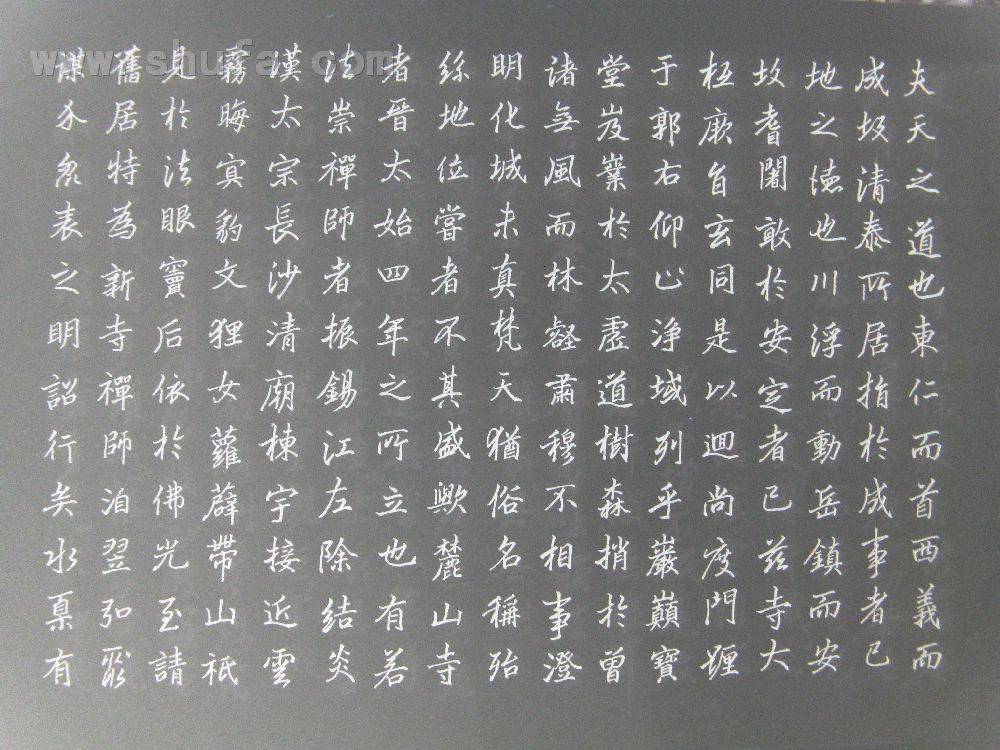 夫天之道也東仁而首西義而
成圾清泰所居指於成事者已
地之德也川浮而動岳鎮而安
故耆闍敢於安定者已茲寺大
極厥自玄同是以迴尚度門躔
于郭右仰止淨域列乎巖巔寶
堂岌嶪於太虛道樹森捎於曾
諸無風而林壑肅穆不相事澄
明化城未真梵天猶俗名稱殆
絲地位嘗者不其盛歟麓山寺
者晉太始四年之所立也有若
法崇禪師者振錫江左除結炎
漢太宗長沙清廟棟宇接近雲
霧晦冥豹文狸女蘿薜帶山祇
見於法眼竇后依於佛光至請
舊居特為新寺禪師洎翌弘聚
謀介衆表之明詔行矣水臬有
www.shufa.com